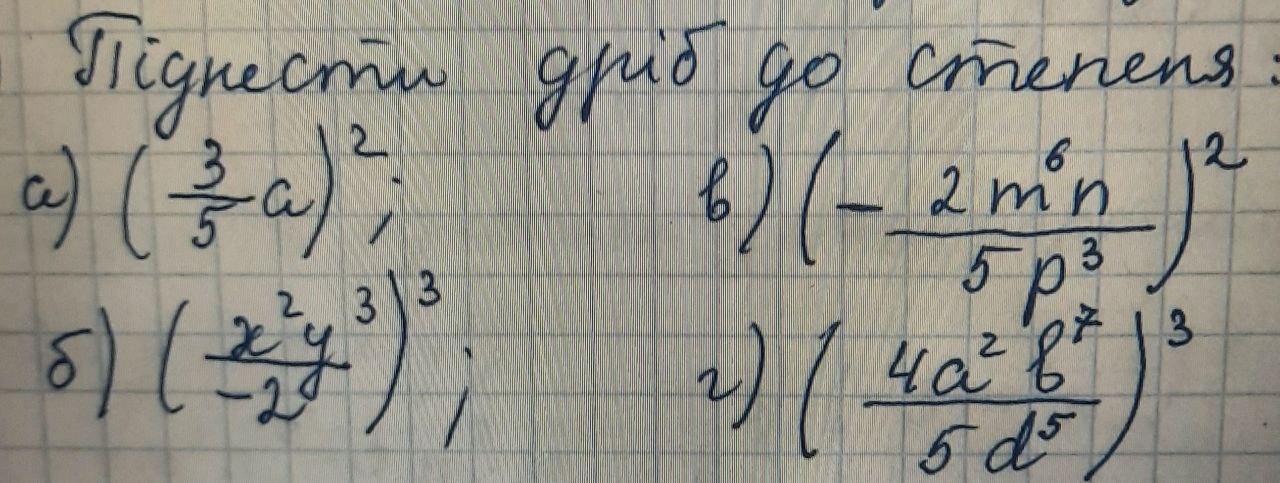 Піднести дріб до степеня:
а) (3/5 a)²;
в) (- 2m⁶n / 5p³)²
б) (x²y³ / -2)³;
г) (4a²b⁷ / 5d⁵)³